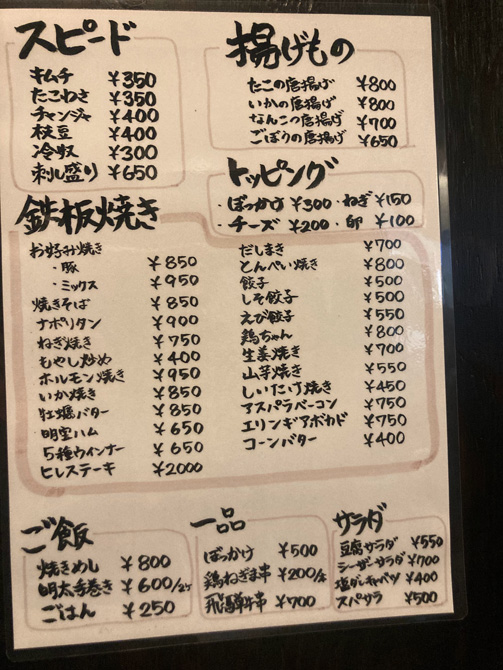 スピード
キムチ ¥350
たこわさ ¥350
チャンジャ ¥400
枝豆 ¥400
冷奴 ¥300
刺し盛り ¥650
揚げもの
たこの唐揚げ ¥800
いかの唐揚げ ¥800
なんこつ唐揚げ ¥700
ごぼうの唐揚げ ¥650
トッピング
・ぼっかけ ¥300・ねぎ ¥150
・チーズ ¥200・卵 ¥100
鉄板焼き
お好み焼き
・豚 ¥850
・ミックス ¥950
焼きそば ¥850
ナポリタン ¥900
ねぎ焼き ¥750
もやし炒め ¥400
ホルモン焼き ¥950
いか焼き ¥850
牡蠣バター ¥850
明宝ハム ¥650
5種ウインナー ¥650
ヒレステーキ ¥2000
だしまき ¥700
とんぺい焼き ¥800
餃子 ¥500
しそ餃子 ¥500
えび餃子 ¥550
鶏ちゃん ¥800
生姜焼き ¥700
山芋焼き ¥550
しいたけ焼き ¥450
アスパラベーコン ¥750
エリンギアボカド ¥750
コーンバター ¥400
ご飯
焼きめし ¥800
明太手巻き ¥600/2ケ
ごはん ¥250
一品
ぼっかけ ¥500
鶏ねぎま串 ¥200/本
飛騨牛串 ¥700
サラダ
豆腐サラダ ¥550
シーザーサラダ ¥700
塩ダレキャベツ ¥400
スパサラ ¥500